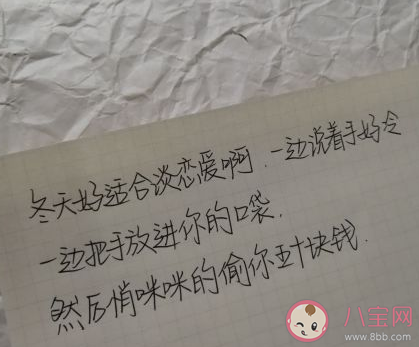 冬天好适合谈恋爱啊.一边说着手好冷
一边把手放进你的口袋.
然后悄咪咪的偷你五十块钱.
八宝网
www.8bb.com